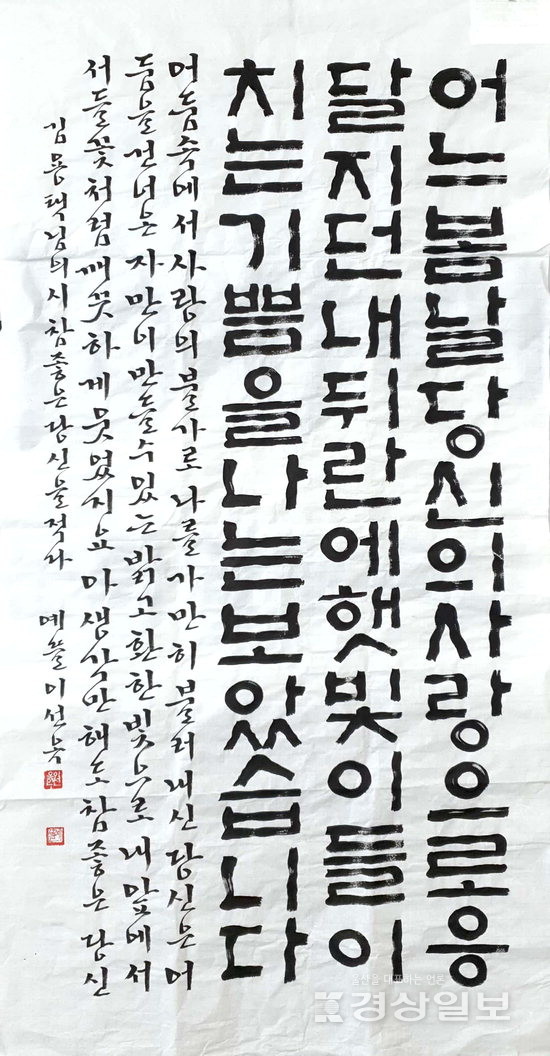 어느봄날당신의사랑으로응
달지던내뒤란에햇빛이들이
치는기쁨을나는보았습니다
어둠속에서사랑의불가로나를가만히불러내신당신은어
둠을건너온자만이만들수있는밝고환한빛으로내앞에서
서들꽃처럼깨끗하게웃었지요아생각만해도참좋은당신
김용택님의시참좋은당신을적다 예뜰이선옥
울산을 대표하는 언론
경상일보